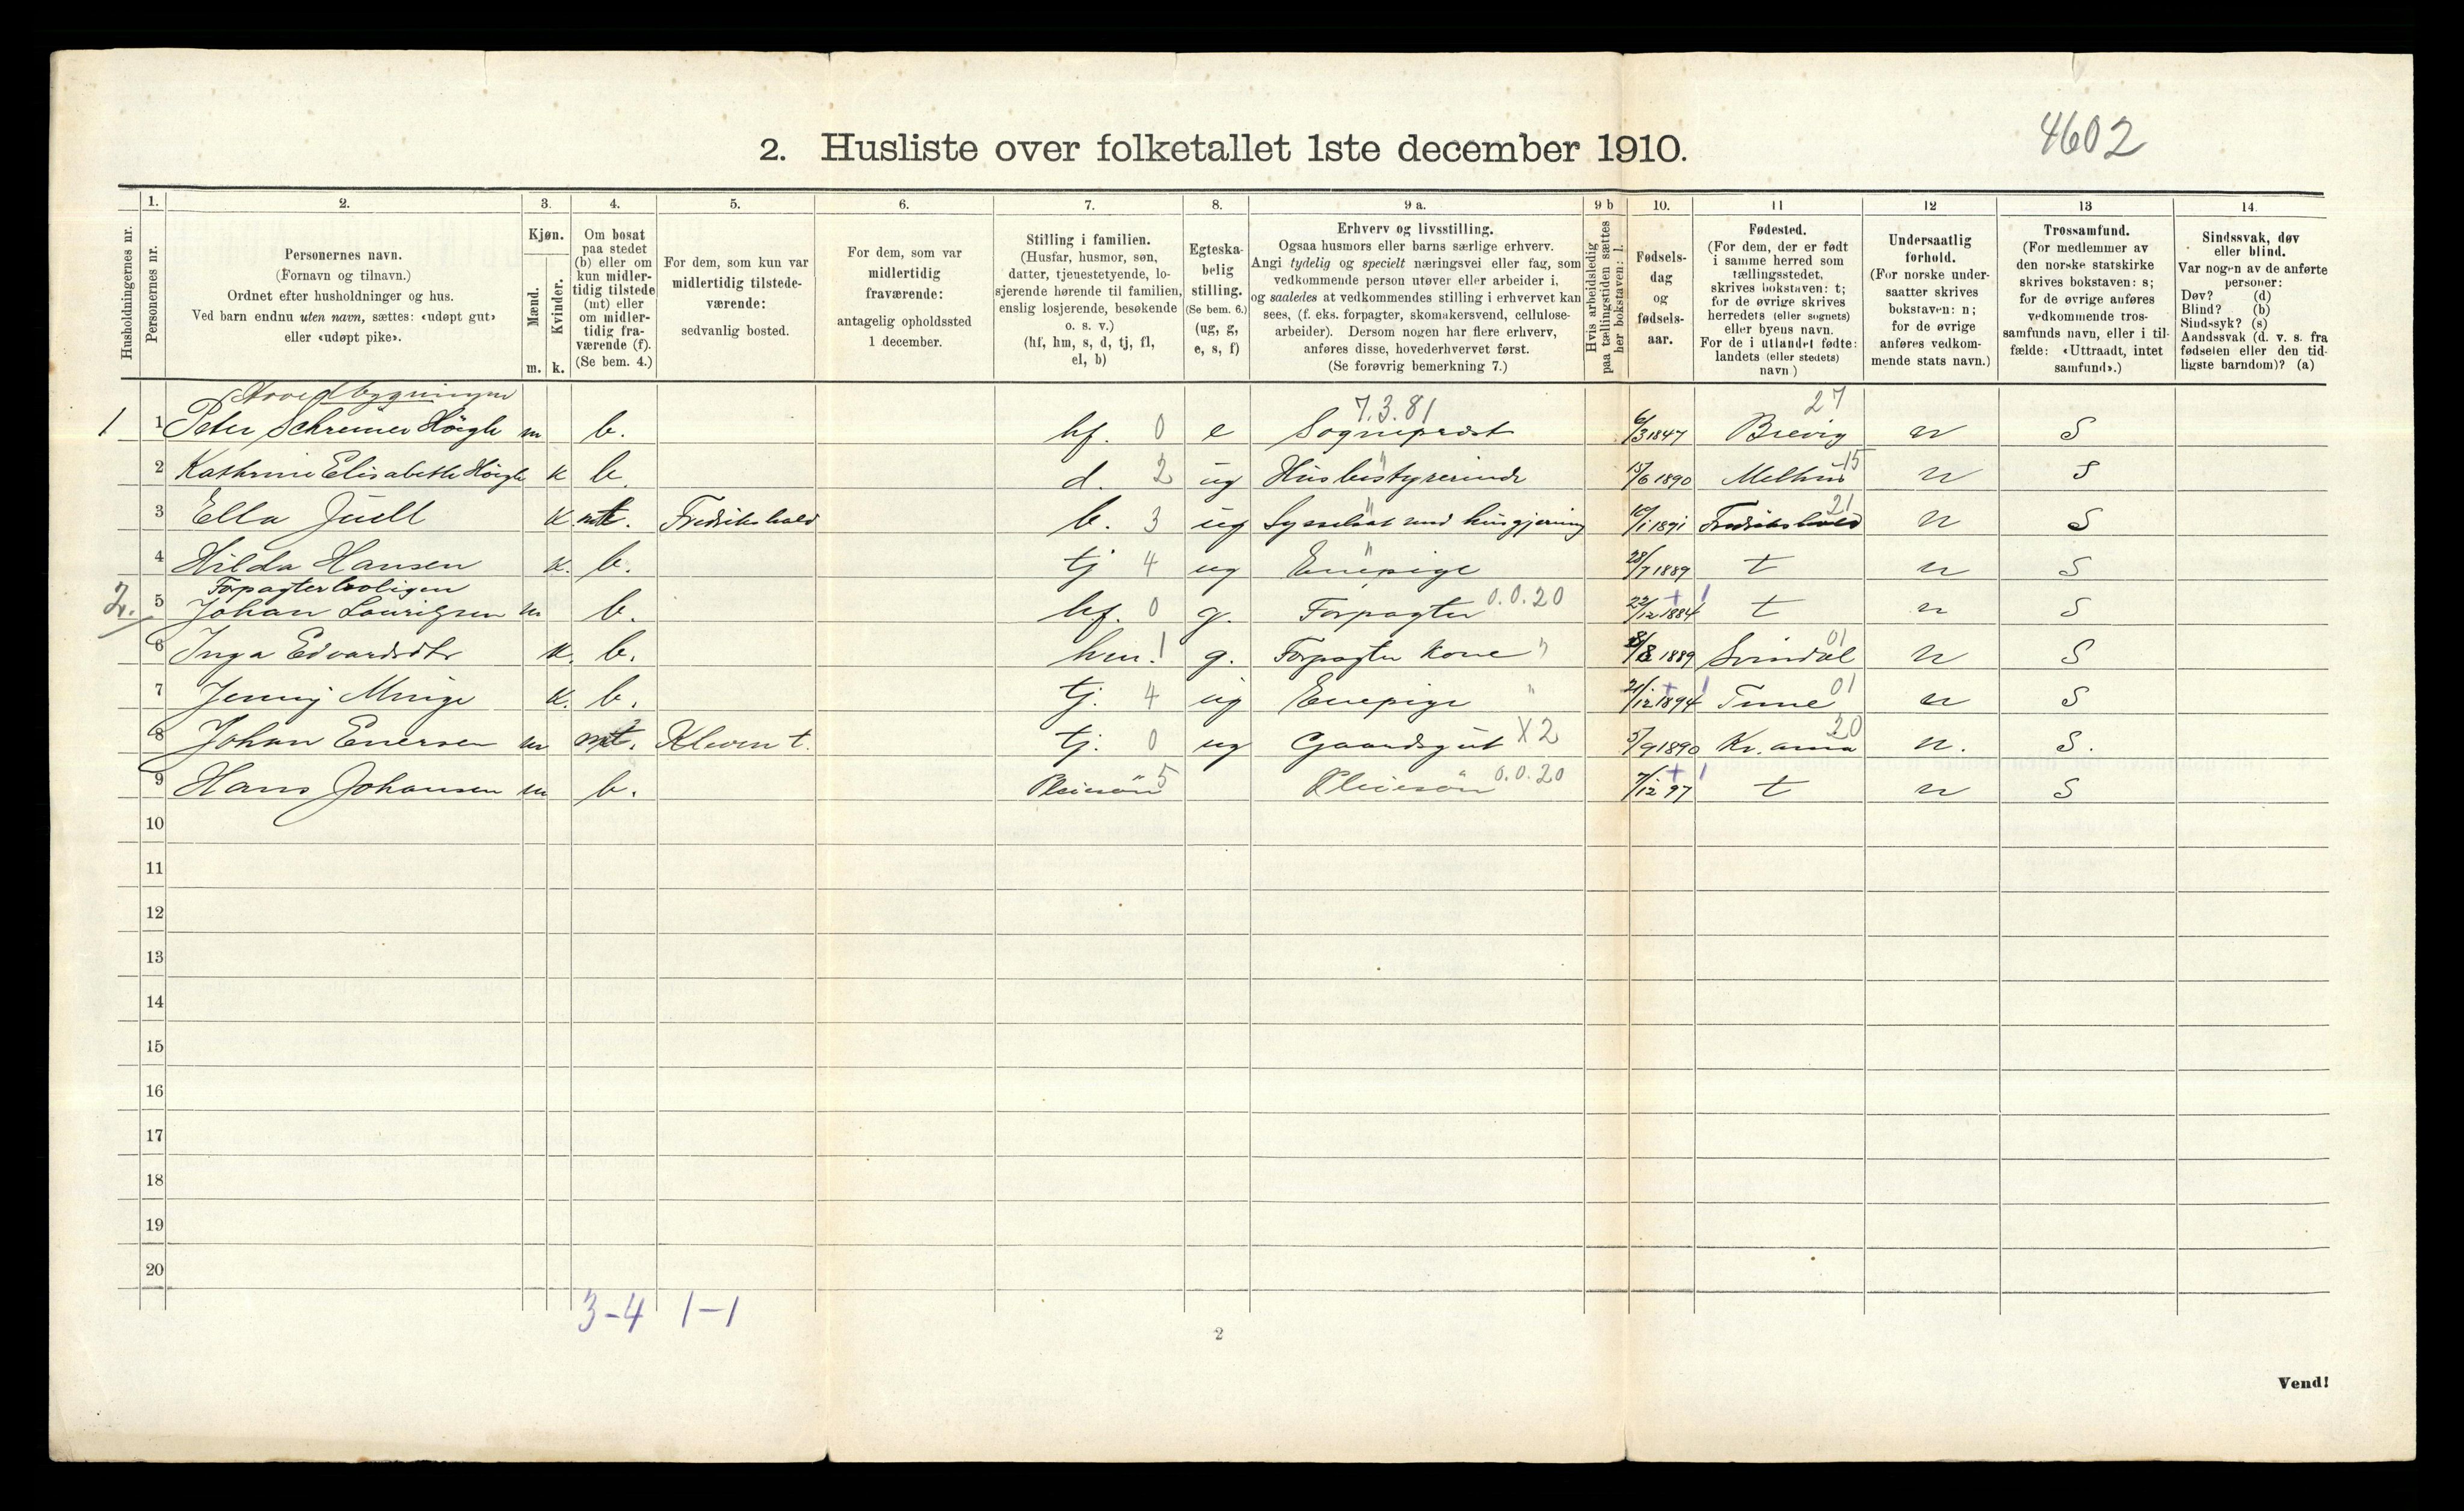 4602
2. Husliste over folketallet 1ste december 1910.
Husholdningernes nr.
1. Personernes nr.
2. Personernes navn.
(Fornavn og tilnavn.)
Ordnet efter husholdninger og hus.
Ved barn endnu uten navn, sættes: «udøpt gut»
eller «udøpt pike».
3. Kjøn.
Mænd. m.
Kvinder. k.
4. Om bosat
paa stedet
(b) eller om
kun midler-
tidig tilstede
(mt) eller
om midler-
tidig fra-
værende (f).
(Se bem. 4.)
5. For dem, som kun var
midlertidig tilstede-
værende:
sedvanlig bosted.
6. For dem, som var
midlertidig
fraværende:
antagelig opholdssted
1 december.
7. Stilling i familien.
(Husfar, husmor, søn,
datter, tjenestetyende, lo-
sjerende hørende til familien,
enslig losjerende, besøkende
o. s. v.)
(hf, hm, s, d, tj, fl,
el, b)
8. Egteska-
belig
stilling.
(Se bem. 6.)
(ug, g,
e, s, f)
9 a. Erhverv og livsstilling.
Ogsaa husmors eller barns særlige erhverv.
Angi tydelig og specielt næringsvei eller fag, som
vedkommende person utøver eller arbeider i,
og saaledes at vedkommendes stilling i erhvervet kan
sees, (f. eks. forpagter, skomakersvend, cellulose-
arbeider). Dersom nogen har flere erhverv,
anføres disse, hovederhvervet først.
(Se forøvrig bemerkning 7.)
9 b Hvis arbeidsledig
paa tællingstiden sættes
her bokstaven: l.
10. Fødsels-
dag
og
fødsels-
aar.
11 Fødested.
(For dem, der er født
i samme herred som
tællingsstedet,
skrives bokstaven: t;
for de øvrige skrives
herredets (eller sognets)
eller byens navn.
For de i utlandet fødte:
landets (eller stedets)
navn.)
12 Undersaatlig
forhold.
(For norske under-
saatter skrives
bokstaven: n;
for de øvrige
anføres vedkom-
mende stats navn.)
13 Trossamfund.
(For medlemmer av
den norske statskirke
skrives bokstaven: s;
for de øvrige anføres
vedkommende tros-
samfunds navn, eller i til-
fælde: «Uttraadt, intet
samfund».)
14. Sindssvak, døv
eller blind.
Var nogen av de anførte
personer:
Døv? (d)
Blind? (b)
Sindssyk? (s)
Aandssvak (d. v. s. fra
fødselen eller den tid-
ligste barndom)? (a)
Hovedbygningen 7.3.81 27
1 1 Peter Schreiner Höigh m b. hf. 0 e Sogneprest 6/3 1847 Brevig n S
2 Kathrine Elisabeth Höigh k b. d. 2 ug Husbestyrerinde " 15/6 1890 Melhus 15 n S
3 Ella Juell k mt. Fredrikshald b. 3 ug Sysselsat med husgjerning " 10/1 1891 Fredrikshald 21 n S
4 Hilda Hansen k. b. tj 4 ug Enepige " 28/7 1889 t n S
Forpagterboligen
2. 5 Johan Lauritsen m b. hf. 0 g. Forpagter 0.0.20 22/12 1884 + 1 t n S
6 Inga Edvardsdtr k. b. hm. 1 g. Forpagter kone " 1889 Svindal 01 n S
7 Jenny Minge k. b. tj. 4 ug Enepige " 21/12 1894 + 1 Tune 01 n S
8 Johan Enersen m mt. Kleven t. tj. 0 ug Gaardsgut X2 5/9 1890 Kr.ania 20 n. S.
9 Hans Johansen m b. Pleiesön 5 Pleiesön " 0.0.20 7/12 97 + 1 t n S
10
11
12
13
14
15
16
17
18
19
20
3-4 1-1
2
Vend!